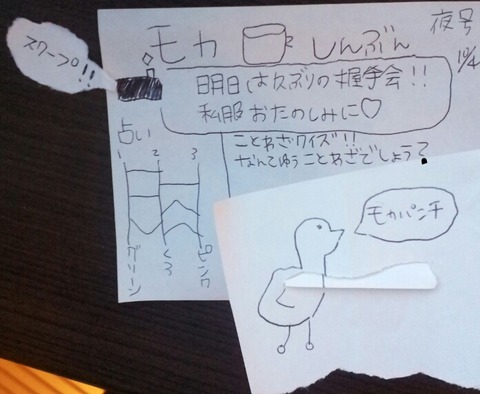 スクープ!!
モカ しんぶん
夜号
10/4
明日は久ぶりの握手会!!
私服おたのしみに♡
占い
1 2 3
グリーン
くろ
ピンク
ことわざクイズ!!
なんてゆうことわざでしょう?
モカパンチ